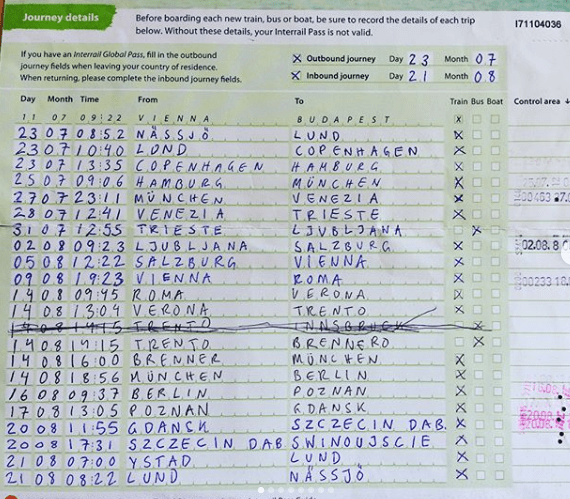 Journey details
Before boarding each new train, bus or boat, be sure to record the details of each trip
below. Without these details, your Interrail Pass is not valid.
I71104036
If you have an Interrail Global Pass, fill in the outbound
journey fields when leaving your country of residence.
When returning, please complete the inbound journey fields.
X Outbound journey Day 23 Month 07
X Inbound journey Day 21 Month 08
Day Month Time From To Train Bus Boat Control area ↓
11 07 09:22 VIENNA BUDAPEST X
23 07 08:52 NÄSSJÖ LUND X
23 07 10:40 LUND COPENHAGEN X
23 07 13:35 COPENHAGEN HAMBURG X
25 07 09:06 HAMBURG MÜNCHEN X
27 07 23:11 MÜNCHEN VENEZIA X
28 07 12:41 VENEZIA TRIESTE X
31 07 12:55 TRIESTE LJUBLJANA X
02 08 09:23 LJUBLJANA SALZBURG X 02.08. 8
05 08 12:22 SALZBURG VIENNA X
09 08 19:23 VIENNA ROMA X 00233 18.
14 08 09:45 ROMA VERONA X
14 08 13:04 VERONA TRENTO X
14 08 14:15 TRENTO INNSBRUCK X
14 08 14:15 TRENTO BRENNERO X
14 08 16:00 BRENNER MÜNCHEN X
14 08 18:56 MÜNCHEN BERLIN X
16 08 09:37 BERLIN POZNAN X
17 08 13:05 POZNAN GDANSK X
20 08 11:55 GDANSK SZCZECIN DAB. X
20 08 17:31 SZCZECIN DAB. SWINOUJSCIE X
21 08 07:00 YSTAD LUND X
21 08 08:22 LUND NÄSSJÖ X